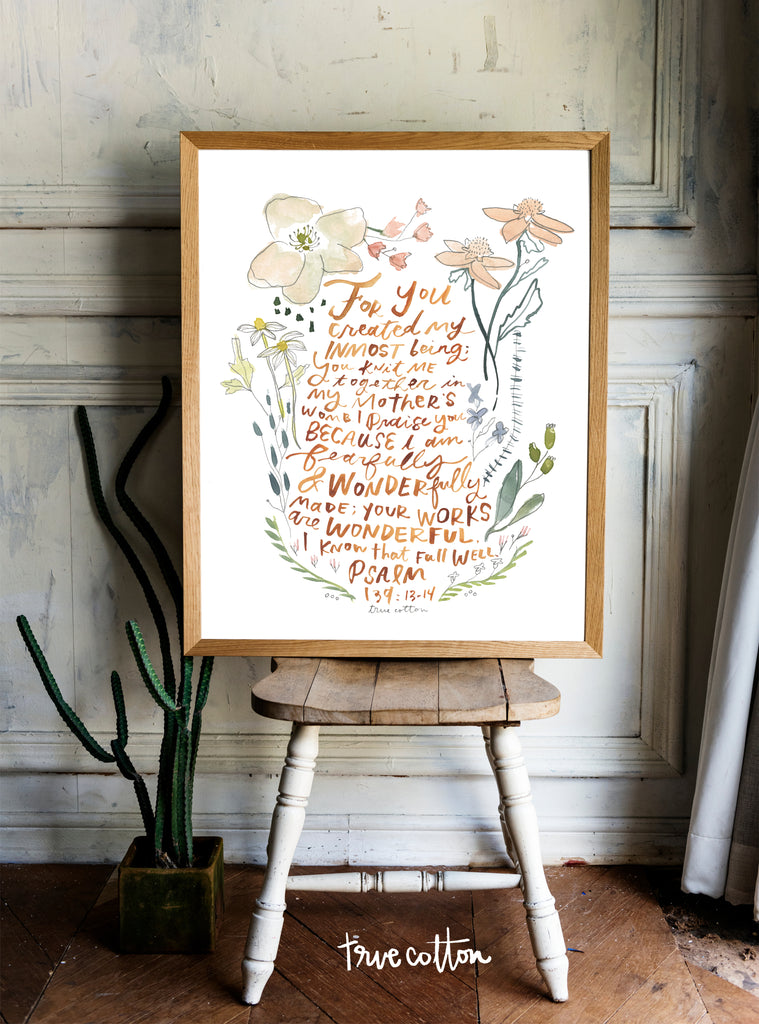 For You
created my
INMOST being;
You knit ME
together in
my MOTHER'S
WOMB I PRAISE you
BECAUSE I am
fearfully
& WONDERfully
MADE; YOUR WORKS
are WONDERFUL,
I know that full WELL.
PSALM
139:13-14
true cotton
true cotton